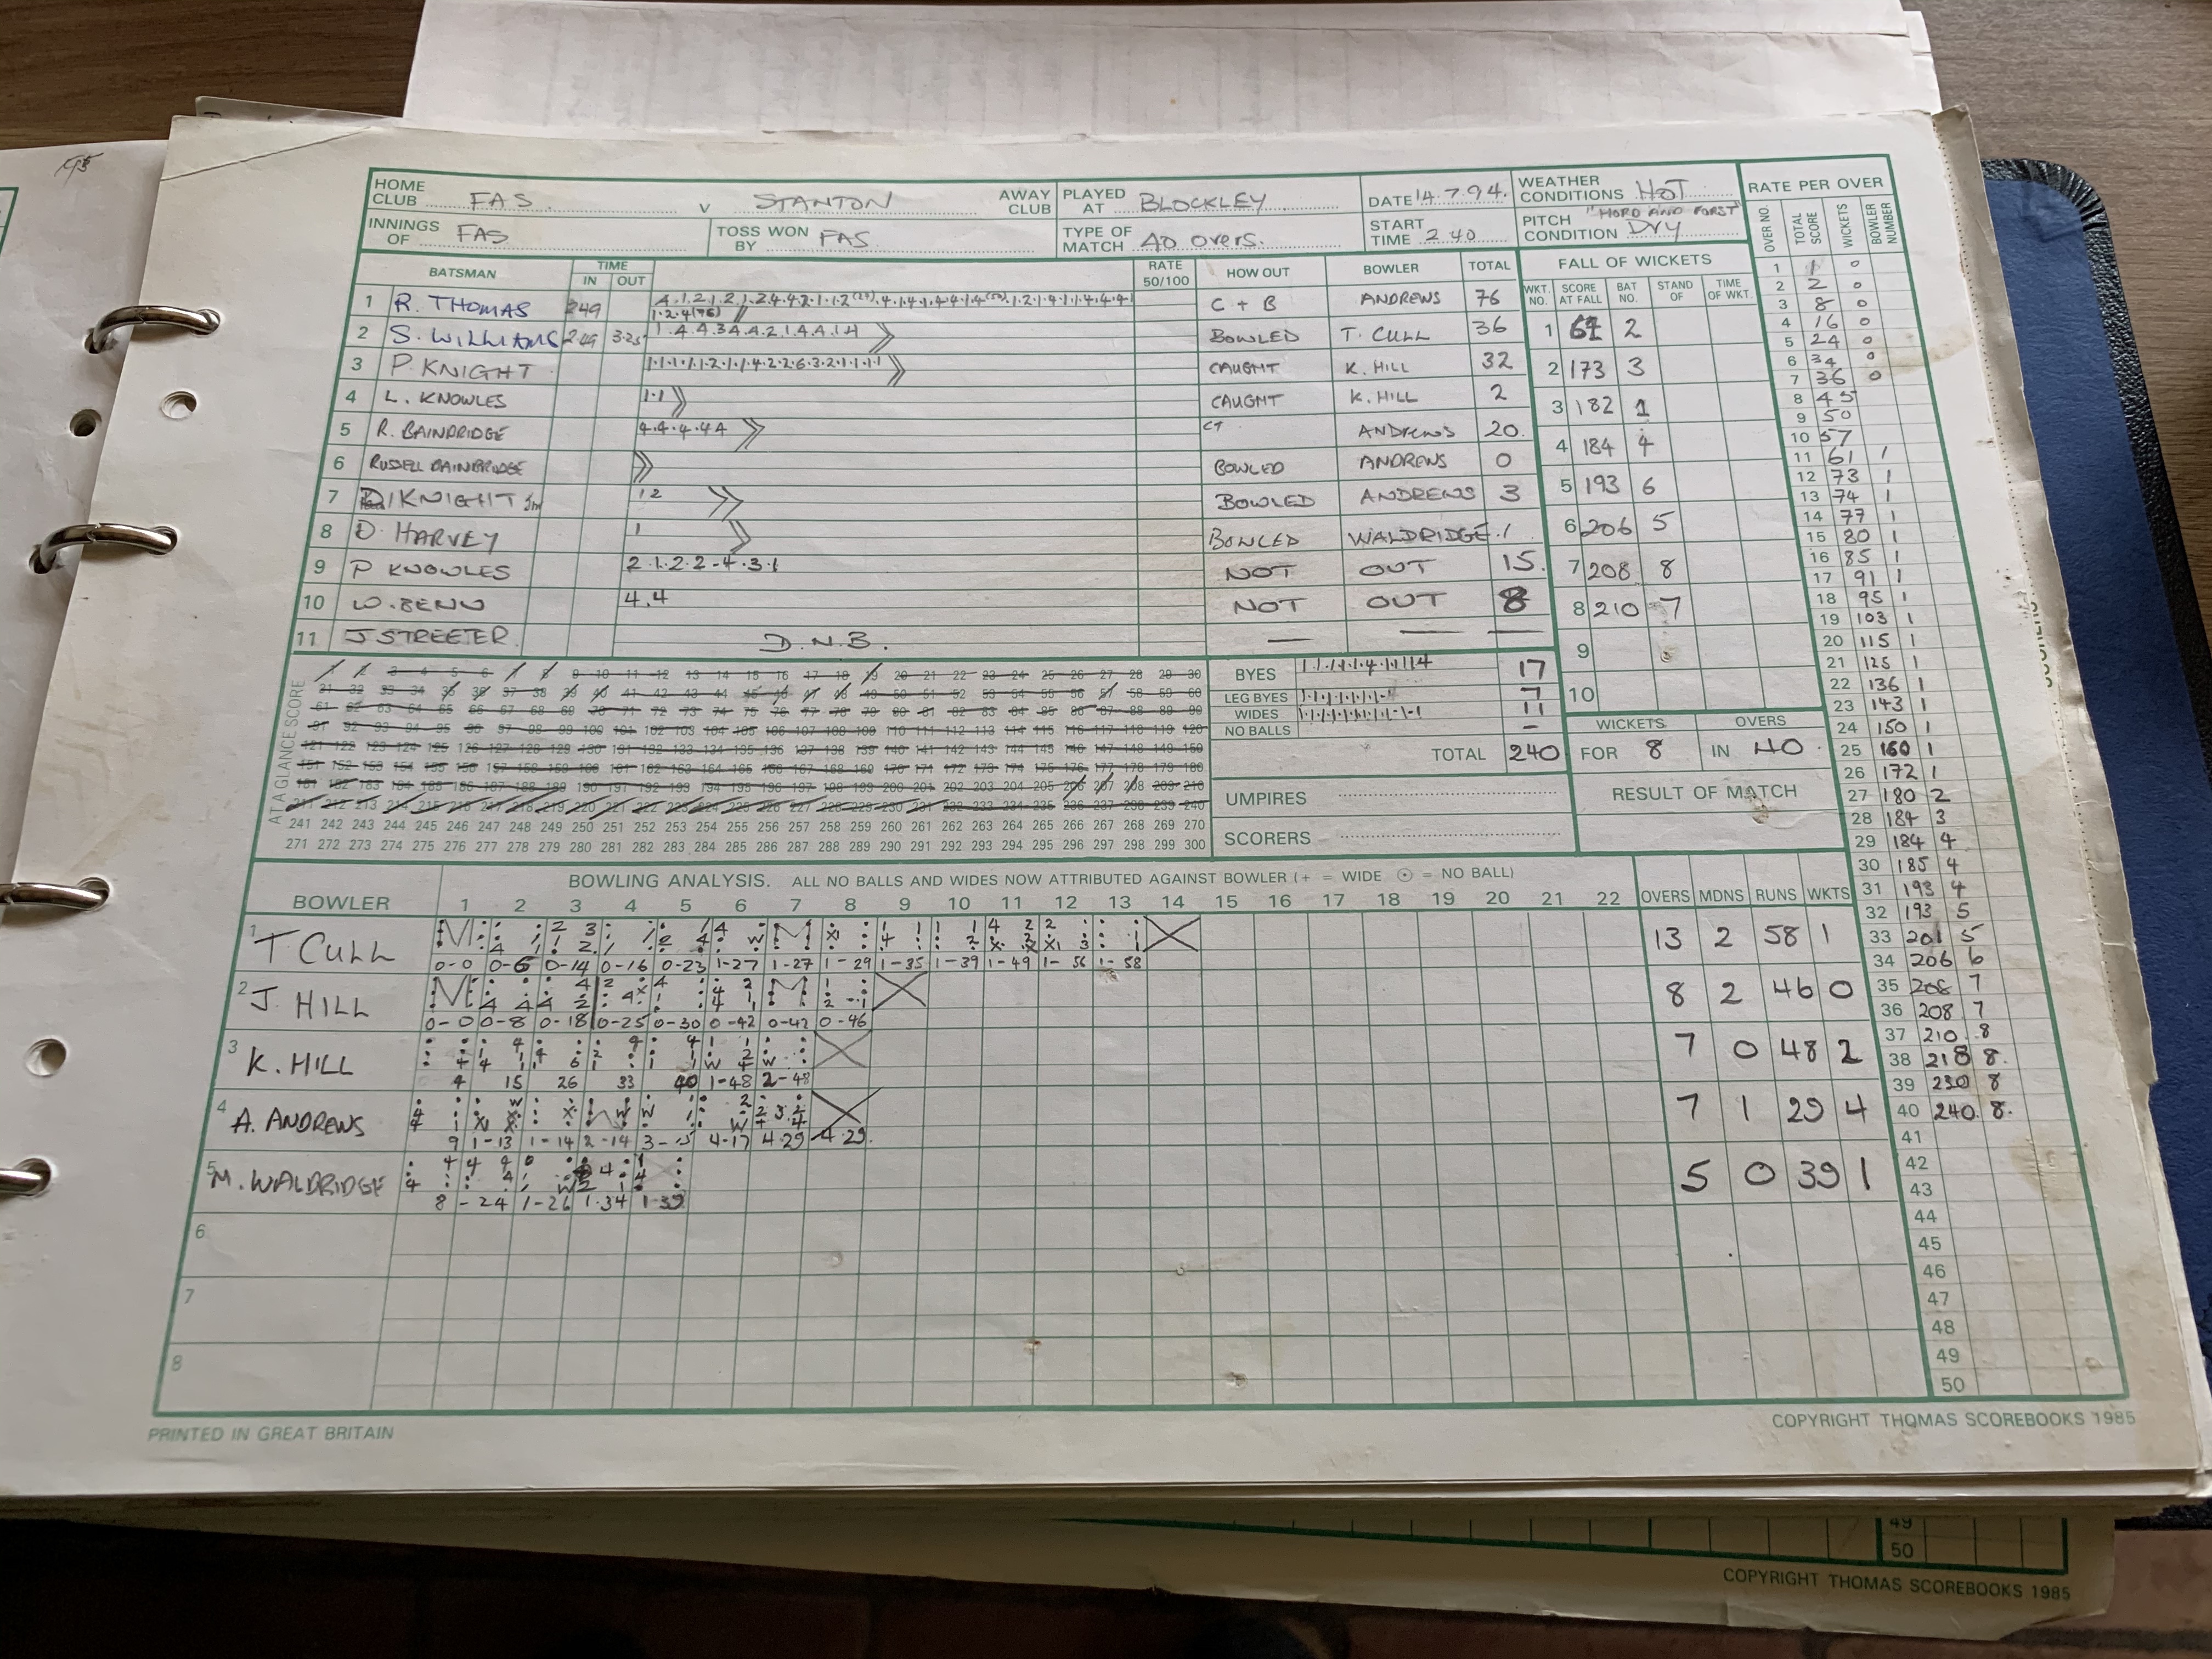 HOME CLUB FAS v STANTON AWAY CLUB PLAYED AT BLOCKLEY DATE 14.7.94. WEATHER CONDITIONS HOT
INNINGS OF FAS TOSS WON BY FAS TYPE OF MATCH 40 overs. START TIME 2.40 PITCH CONDITION DRY
RATE PER OVER
OVER NO. TOTAL SCORE WICKETS BOWLER NUMBER
BATSMAN TIME IN OUT RATE 50/100 HOW OUT BOWLER TOTAL
1 R. THOMAS 249 C + B ANDREWS 76
2 S. WILLIAMS 2.49 1.4.4.3.4.4.2.1.4.4.1.4 BOWLED T. CULL 36
3 P. KNIGHT CAUGHT K. HILL 32
4 L. KNOWLES 1.1 CAUGHT K. HILL 2
5 R. BAINBRIDGE 4.4.4.4.4 CT ANDREWS 20.
6 RUSSELL BAINBRIDGE BOWLED ANDREWS 0
7 KNIGHT 1 2 BOWLED ANDREWS 3
8 D. HARVEY 1 BOWLED WALDRIDGE. 1
9 P KNOWLES 2.1.2.2.4.3.1 NOT OUT 15.
10 W. BENN 4.4 NOT OUT 8
11 J STREETER. D.N.B.
FALL OF WICKETS
WKT. NO. SCORE AT FALL BAT NO. STAND OF TIME OF WKT.
1 61 2
2 173 3
3 182 1
4 184 4
5 193 6
6 206 5
7 208 8
8 210 7
9
10
BYES 17
LEG BYES 7
WIDES 11
NO BALLS –
TOTAL 240
WICKETS OVERS
FOR 8 IN 40
RESULT OF MATCH
UMPIRES
SCORERS
AT A GLANCE SCORE
1 2 3 4 5 6 7 8 9 10 11 12 13 14 15 16 17 18 19 20 21 22 23 24 25 26 27 28 29 30
31 32 33 34 35 36 37 38 39 40 41 42 43 44 45 46 47 48 49 50 51 52 53 54 55 56 57 58 59 60
61 62 63 64 65 66 67 68 69 70 71 72 73 74 75 76 77 78 79 80 81 82 83 84 85 86 87 88 89 90
91 92 93 94 95 96 97 98 99 100 101 102 103 104 105 106 107 108 109 110 111 112 113 114 115 116 117 118 119 120
121 122 123 124 125 126 127 128 129 130 131 132 133 134 135 136 137 138 139 140 141 142 143 144 145 146 147 148 149 150
151 152 153 154 155 156 157 158 159 160 161 162 163 164 165 166 167 168 169 170 171 172 173 174 175 176 177 178 179 180
181 182 183 184 185 186 187 188 189 190 191 192 193 194 195 196 197 198 199 200 201 202 203 204 205 206 207 208 209 210
211 212 213 214 215 216 217 218 219 220 221 222 223 224 225 226 227 228 229 230 231 232 233 234 235 236 237 238 239 240
241 242 243 244 245 246 247 248 249 250 251 252 253 254 255 256 257 258 259 260 261 262 263 264 265 266 267 268 269 270
271 272 273 274 275 276 277 278 279 280 281 282 283 284 285 286 287 288 289 290 291 292 293 294 295 296 297 298 299 300
BOWLING ANALYSIS. ALL NO BALLS AND WIDES NOW ATTRIBUTED AGAINST BOWLER (+ = WIDE ⊙ = NO BALL)
BOWLER 1 2 3 4 5 6 7 8 9 10 11 12 13 14 15 16 17 18 19 20 21 22 OVERS MDNS RUNS WKTS
1 T. CULL 13 2 58 1
0-0 0-6 0-14 0-16 0-23 1-27 1-27 1-29 1-35 1-39 1-49 1-56 1-58
2 J. HILL 8 2 46 0
0-0 0-8 0-18 0-25 0-30 0-42 0-42 0-46
3 K. HILL 7 0 48 2
4 15 26 33 40 1-48 2-48
4 A. ANDREWS 7 1 29 4
9 1-13 1-14 2-14 3-15 4-17 4.29 4.29.
5 M. WALDRIDGE 5 0 39 1
8 - 24 1-26 1.34 1-39
6
7
8
1 1 0
2 2 0
3 8 0
4 16 0
5 24 0
6 34 0
7 36 0
8 45
9 50
10 57
11 61 1
12 73 1
13 74 1
14 77 1
15 80 1
16 85 1
17 91 1
18 95 1
19 103 1
20 115 1
21 125 1
22 136 1
23 143 1
24 150 1
25 160 1
26 172 1
27 180 2
28 184 3
29 184 4
30 185 4
31 193 4
32 193 5
33 201 5
34 206 6
35 208 7
36 208 7
37 210 8
38 218 8.
39 230 8
40 240. 8.
41
42
43
44
45
46
47
48
49
50
PRINTED IN GREAT BRITAIN
COPYRIGHT THOMAS SCOREBOOKS 1985
49
50
COPYRIGHT THOMAS SCOREBOOKS 1985